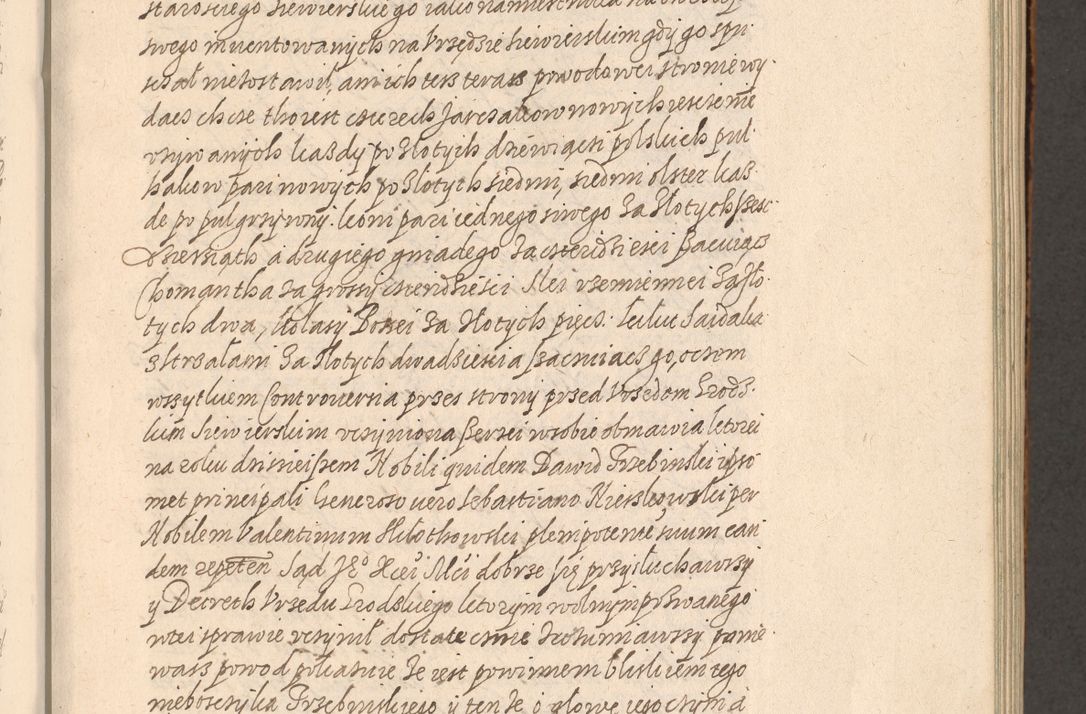 starosciego siewierskiego iako namiestnika na
swego inuentowanych na Vrzędzie siewierskim gdy go spu
sczał niezostawił, ani ich tersz terasz powodowei stronie wy
dacz chcze tho iest czterech Jarczakow nowych iescze nie
vzywanych kazdy po złotych dziewiąci polskich puł
hakow pari nowych po złotych siedmi, siedmi olster kaz
de po puł grzywny. koni pari iednego siwego za złotych szesc
dziesiąth a drugiego gniadego za czterdziesci szacuiącz
Chomantha za grossy czterdziesci Lei rzemiennei za zło
tych dwa, kolasy Bosei za złotych pięcz. Łuku Saidaka
z strzałami za złotych dwadziescia szacuiącz go, oczem
wszytkiem Controuersia przes strony przed Vrzedem Grodz
kim Siewierskim vczyniona szerzei wsobie obmawia ktorei
na roku dzisieiszem Nobili quidem Dawid Trzebinski ipso
met principali Generoso uero Sebastiano Kierskowski per
Nobilem Valentinum plenipotente suum ean
dem repeten Sąd Je° Xcei Mci dobrze się przysłuchawszy
y Decreth Vrzedu Grodskiego ktorym wolnym pozwanego
wtei sprawie vczynił dostatecznie zrozumiawszy ponie
wasz powod pokazuie ze iest powinnem bliskiem tego
nieboszczyka Trzebinskiego y ten ze o głowe iego czyni a